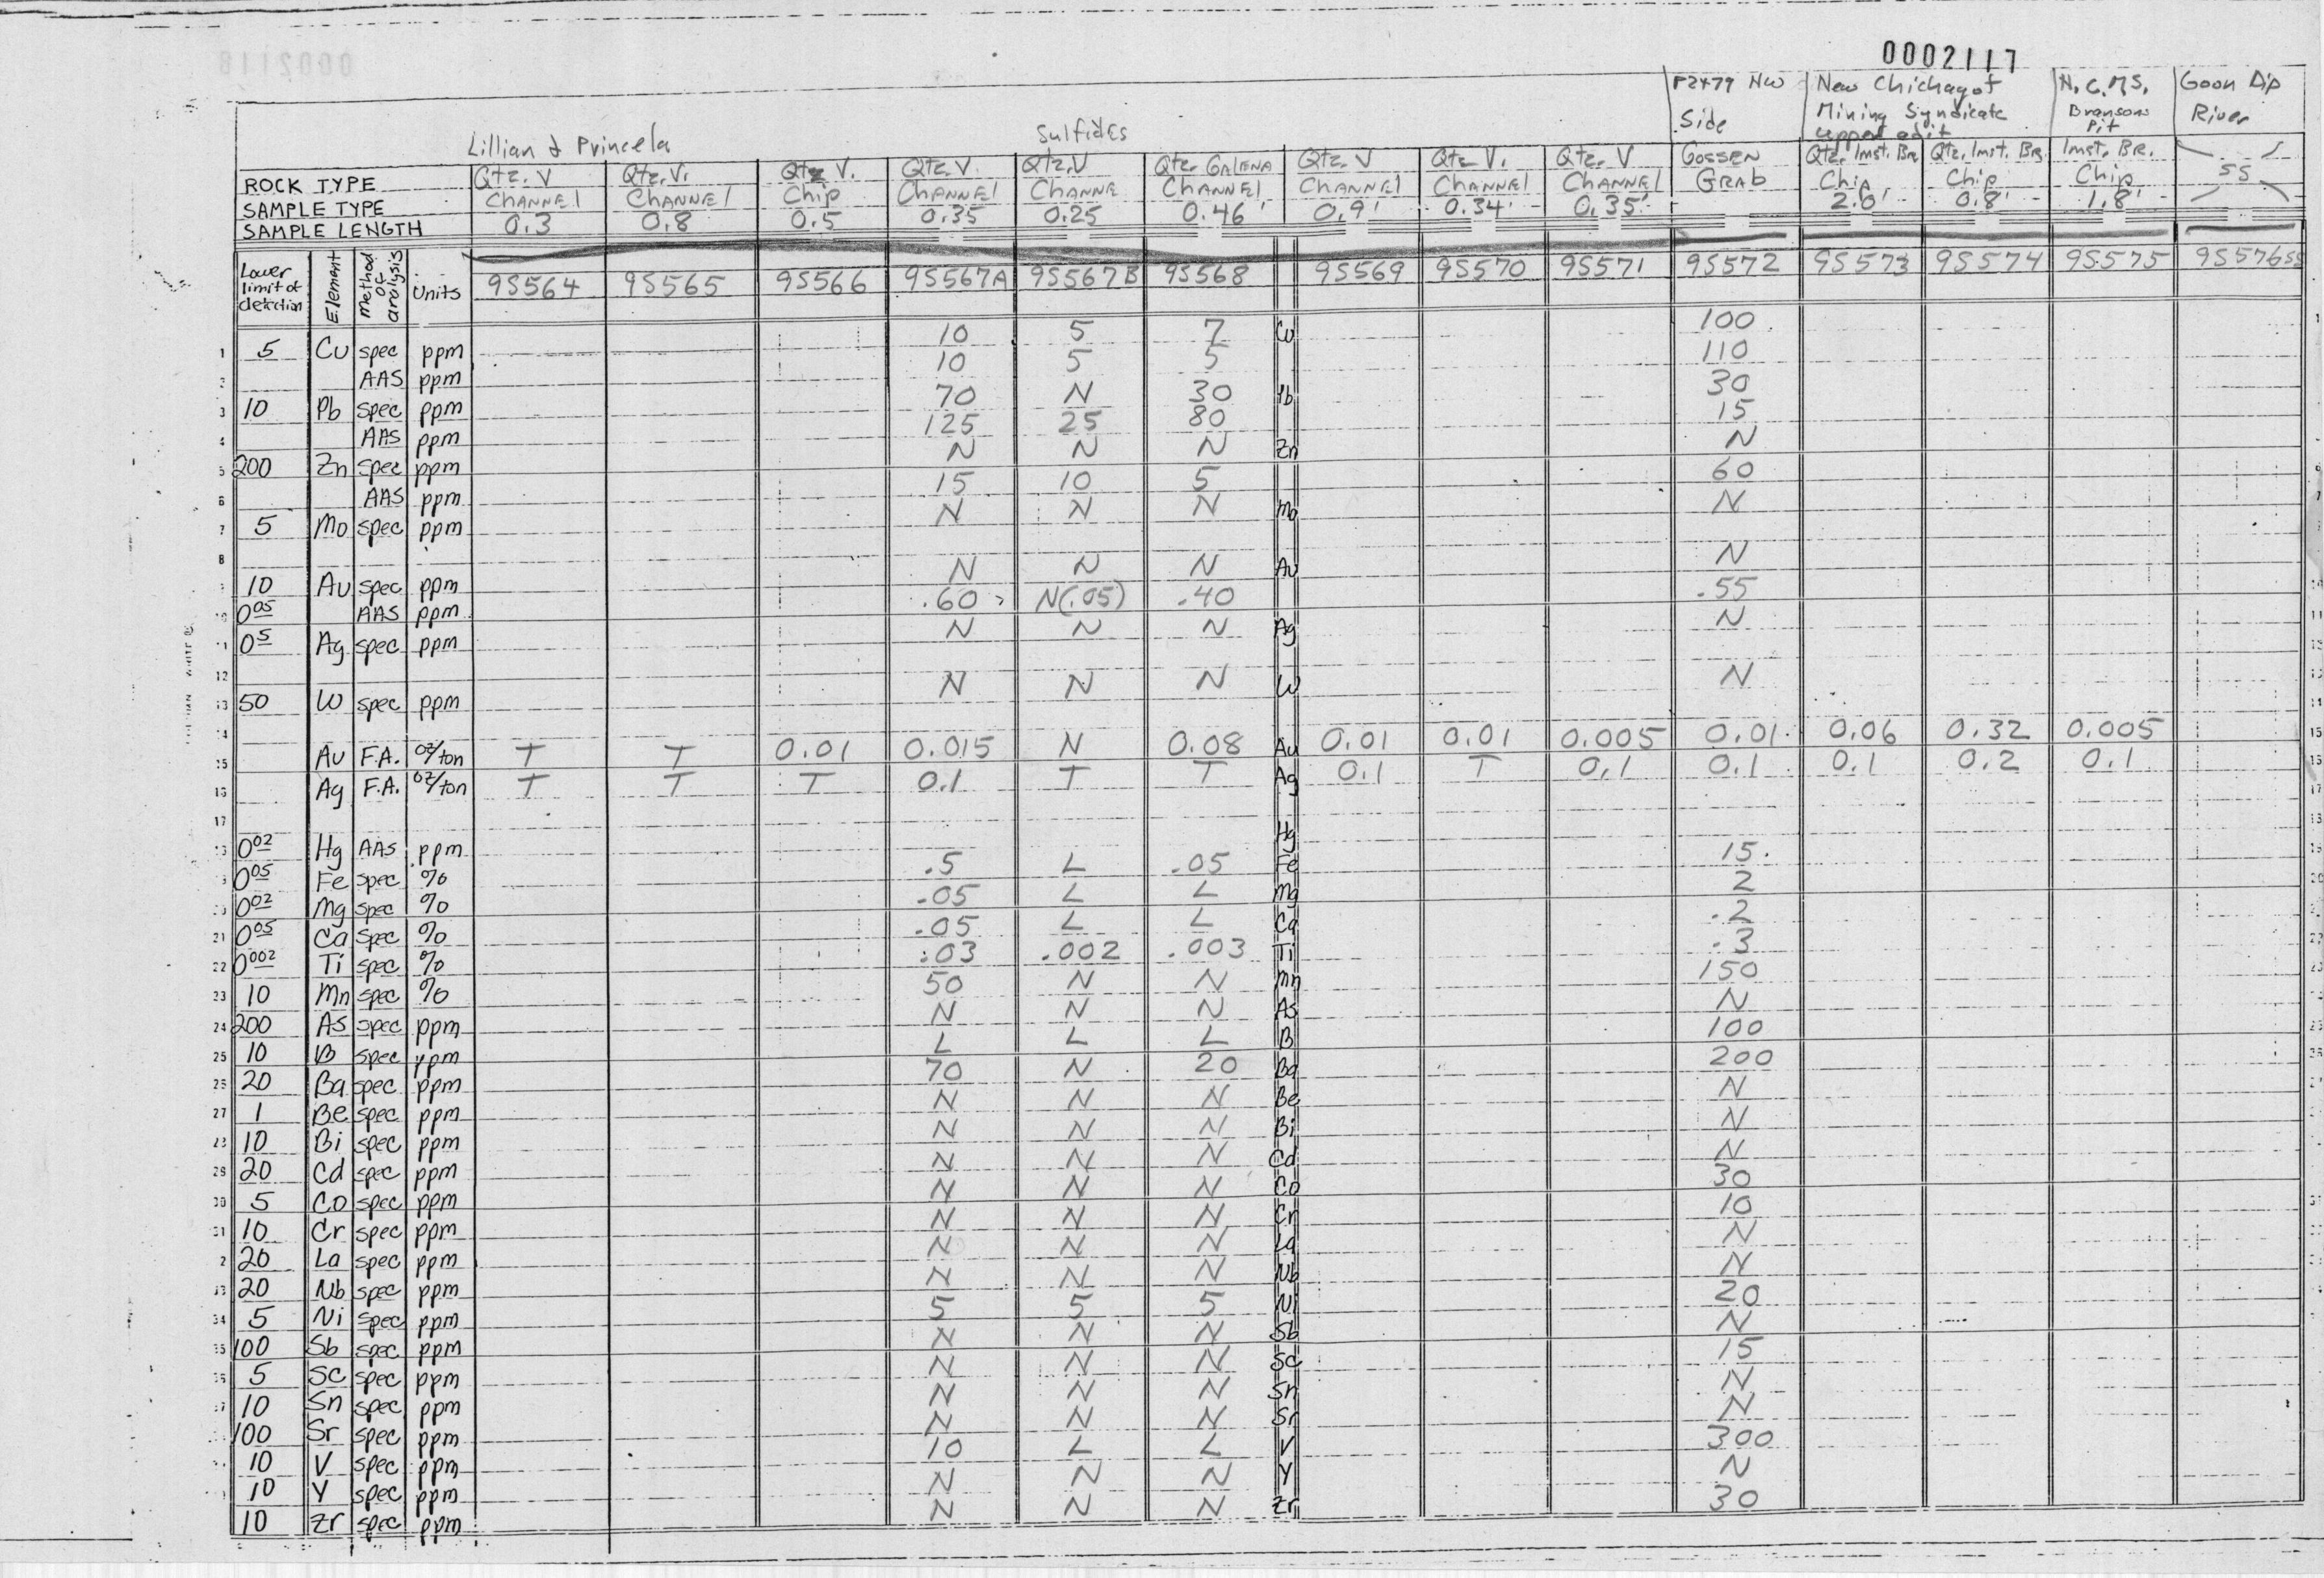 0002117
Lillian & Princela
Sulfides
P2479 NW Side
New Chichagof Mining Syndicate upper adit
N.C.M.S. Bransons Pit
Goon Dip River
ROCK TYPE Qtz. V Qtz. V. Qtz V. Qtz. V. Qtz. V Qtz. GALENA Qtz. V Qtz V. Qtz. V GOSSEN Qtz. Imst. BR. Qtz. Imst. BR. Imst. BR. SS
SAMPLE TYPE CHANNEL CHANNEL Chip CHANNEL CHANNE CHANNEL CHANNEL CHANNEL CHANNEL GRAB Chip Chip Chip
SAMPLE LENGTH 0.3 0.8 0.5 0.35 0.25 0.46' 0.9' 0.34' 0.35' 2.6' 0.8' 1.8'
Lower limit of detection Element Method of analysis Units 9S564 9S565 9S566 9S567A 9S567B 9S568 9S569 9S570 9S571 9S572 9S573 9S574 9S575 9S576SS
1 5 Cu spec ppm 10 5 7 Cu 100
2 AAS ppm 10 5 5 110
3 10 Pb spec ppm 70 N 30 Pb 30
4 AAS ppm 125 25 80 15
5 200 Zn spec ppm N N N Zn N
6 AAS ppm 15 10 5 60
7 5 Mo spec ppm N N N Mo N
8
10 Au spec ppm N N N Au N
0.05 AAS ppm .60 N(.05) .40 .55
11 0.5 Ag spec ppm N N N Ag N
12
13 50 W spec ppm N N N W N
14
15 Au F.A. oz/ton T T 0.01 0.015 N 0.08 Au 0.01 0.01 0.005 0.01 0.06 0.32 0.005
16 Ag F.A. oz/ton T T T 0.1 T T Ag 0.1 T 0.1 0.1 0.1 0.2 0.1
17
0.02 Hg AAS ppm Hg
0.05 Fe spec % .5 L .05 Fe 15
0.02 Mg spec % .05 L L Mg 2
21 0.05 Ca spec % .05 L L Ca .2
22 0.002 Ti spec % .03 .002 .003 Ti .3
23 10 Mn spec % 50 N N Mn 150
24 200 As spec ppm N N N As N
25 10 B spec ppm L L L B 100
26 20 Ba spec ppm 70 N 20 Ba 200
27 1 Be spec ppm N N N Be N
28 10 Bi spec ppm N N N Bi N
29 20 Cd spec ppm N N N Cd N
30 5 Co spec ppm N N N Co 30
31 10 Cr spec ppm N N N Cr 10
20 La spec ppm N N N La N
33 20 Nb spec ppm N N N Nb N
34 5 Ni spec ppm 5 5 5 Ni 20
35 100 Sb spec ppm N N N Sb N
5 Sc spec ppm N N N Sc 15
10 Sn spec ppm N N N Sn N
100 Sr spec ppm N N N Sr N
10 V spec ppm 10 L L V 300
10 Y spec ppm N N N Y N
10 Zr spec ppm N N N Zr 30